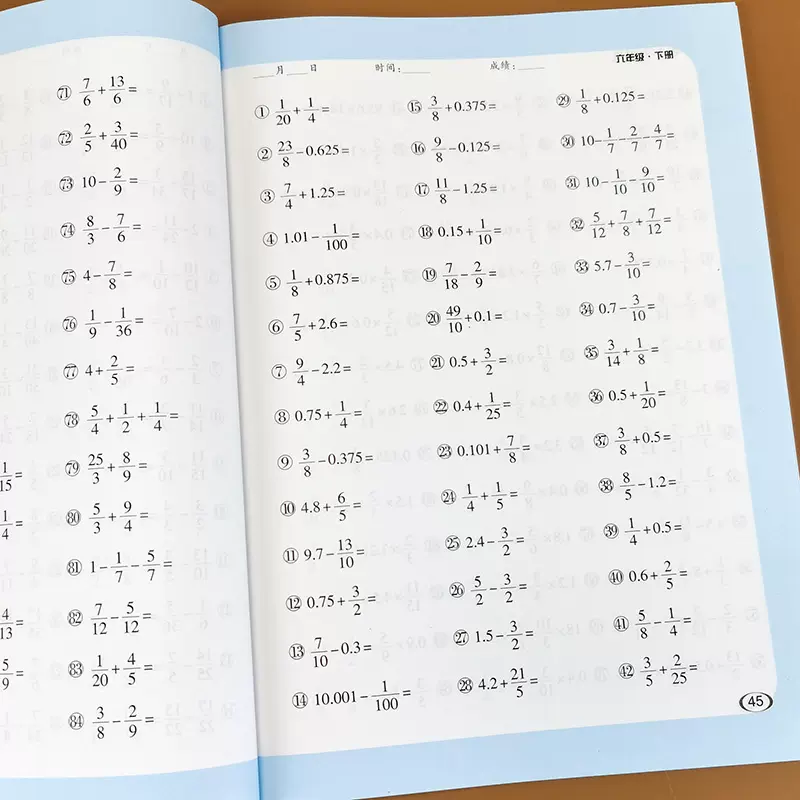 1/15=
1/4=
4/13=
5/9=
㉛ 7/6+13/6=
㉜ 2/5+3/40=
㉝ 10−2/9=
㉞ 8/3−7/6=
㉟ 4−7/8=
㊱ 1/9−1/36=
㊲ 4+2/5=
㊳ 5/4+1/2+1/4=
㊴ 25/3+8/9=
80 5/3+9/4=
81 1−1/7−5/7=
82 7/12−5/12=
83 1/20+4/5=
84 3/8−2/9=
六年级·下册
____月___日 时间:____ 成绩:____
① 1/20+1/4=
② 23/8−0.625=
③ 7/4+1.25=
④ 1.01−1/100=
⑤ 1/8+0.875=
⑥ 7/5+2.6=
⑦ 9/4−2.2=
⑧ 0.75+1/4=
⑨ 3/8−0.375=
⑩ 4.8+6/5=
⑪ 9.7−13/10=
⑫ 0.75+3/2=
⑬ 7/10−0.3=
⑭ 10.001−1/100=
⑮ 3/8+0.375=
⑯ 9/8−0.125=
⑰ 11/8−1.25=
⑱ 0.15+1/10=
⑲ 7/18−2/9=
⑳ 49/10+0.1=
㉑ 0.5+3/2=
㉒ 0.4+1/25=
㉓ 0.101+7/8=
㉔ 1/4+1/5=
㉕ 2.4−3/2=
㉖ 5/2−3/2=
㉗ 1.5−3/2=
㉘ 4.2+21/5=
㉙ 1/8+0.125=
㉚ 10−1/7−2/7−4/7=
㉛ 10−1/10−9/10=
㉜ 5/12+7/8+7/12=
㉝ 5.7−3/10=
㉞ 0.7−3/10=
㉟ 3/14+1/8=
㊱ 0.5+1/20=
㊲ 3/8+0.5=
㊳ 8/5−1.2=
㊴ 1/4+0.5=
㊵ 0.6+2/5=
㊶ 5/8−1/4=
㊷ 3/5+2/25=
45